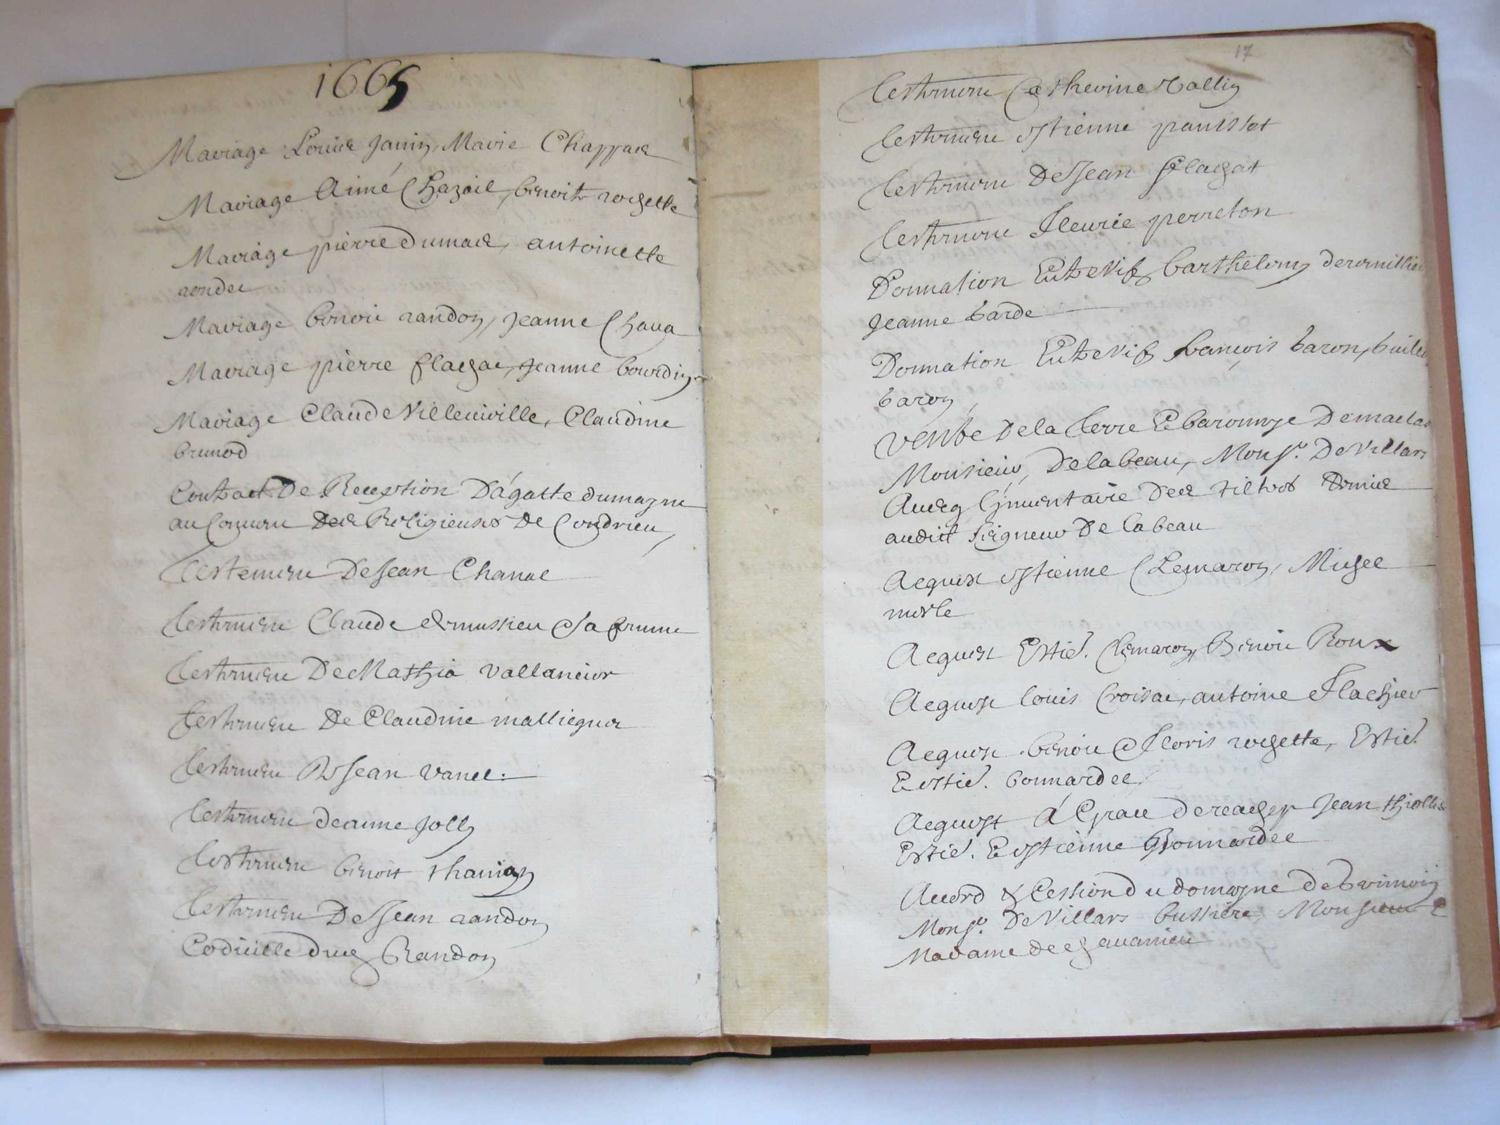 1665
Mariage Louise Janin, Marie Chappas
Mariage Aimé Chazail, benoite rogette
Mariage pierre dumas, antoinette
rondee
Mariage benoi randon, Jeanne Chava
Mariage pierre flachat, Jeanne bourdin
Mariage Claude Villeviville, Claudine
brunod
Contract De Reception D'agatte dumagne
au Couvens Des Religieuses De Condrieu,
Testemens De Jean Chanal
Testemens Claude & mussieu Sa femme
Testemens De Mathia Vallancier
Testemens De Claudine mallieguer
Testemens De Jean Vanel.
Testemens deanne Jolly
Testemens benoit thaniay
Testemens De Jean randon
Codicille dud Randon
17
Testemens Catherine
Testemens Estienne pausset
Testemens De Jean flachat
Testemens fleurie perreton
Donnation Entrevifs barthelemy
Jeanne barde
Donnation Entrevifs francois baron,
baron
Vente De la Terre Et baronnye De
Monsieur, De la beau, Monsr. De Villars
Avecq Linventaire Des Tiltres Remis
audit seigneur De la beau
Acquest Estienne Clemaron,
merle
Acquest Estie. Clemaron, Benoi Roux
Acquest Louis Croisat, antoine flachier
Acquest benoi & floris rogette, Estie.
Et Estie. bonnardel
Acquest A Grace de reachep Jean
Estie. Et Estienne Bonnardel
Accord & Cession du domayne de
Monsr. De Villars bussiere, Monsieur E
Madame de